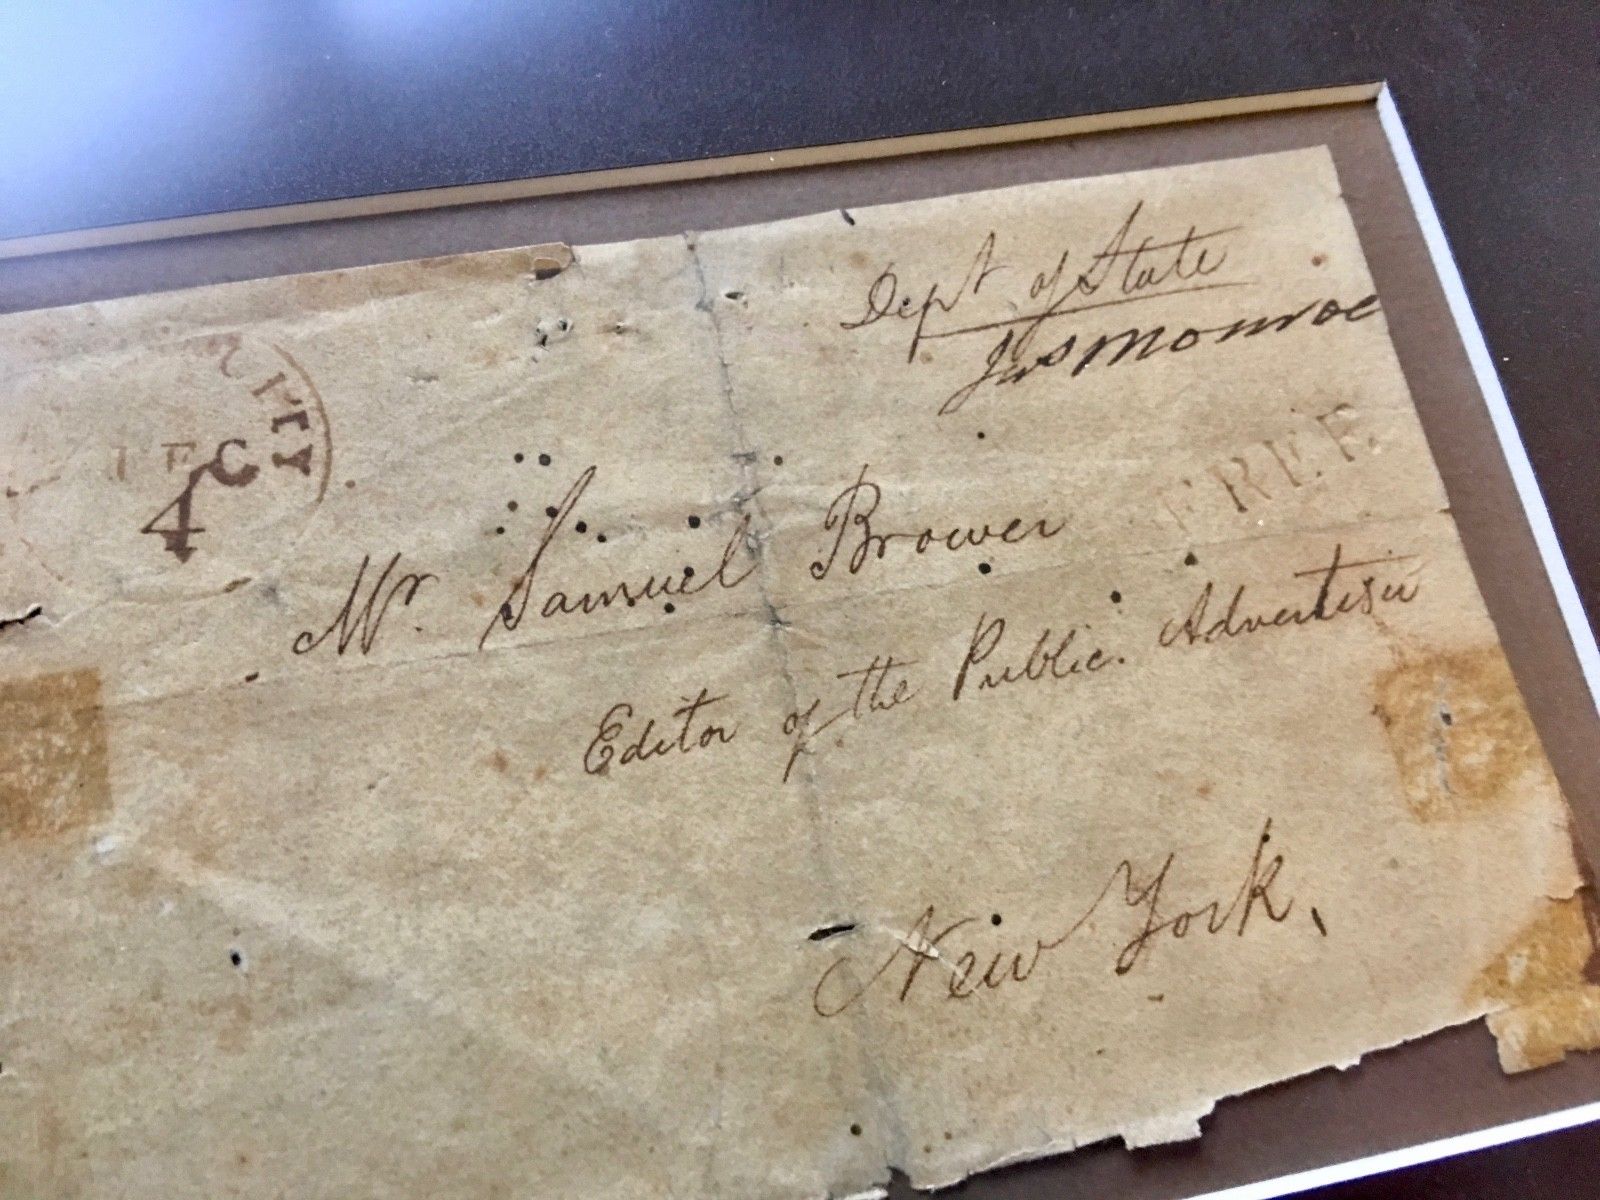 Dept of State
Jas Monroe
CITY
DEC
4
FREE
Mr. Samuel Brower
Editor of the Public. Advertiser
New York,